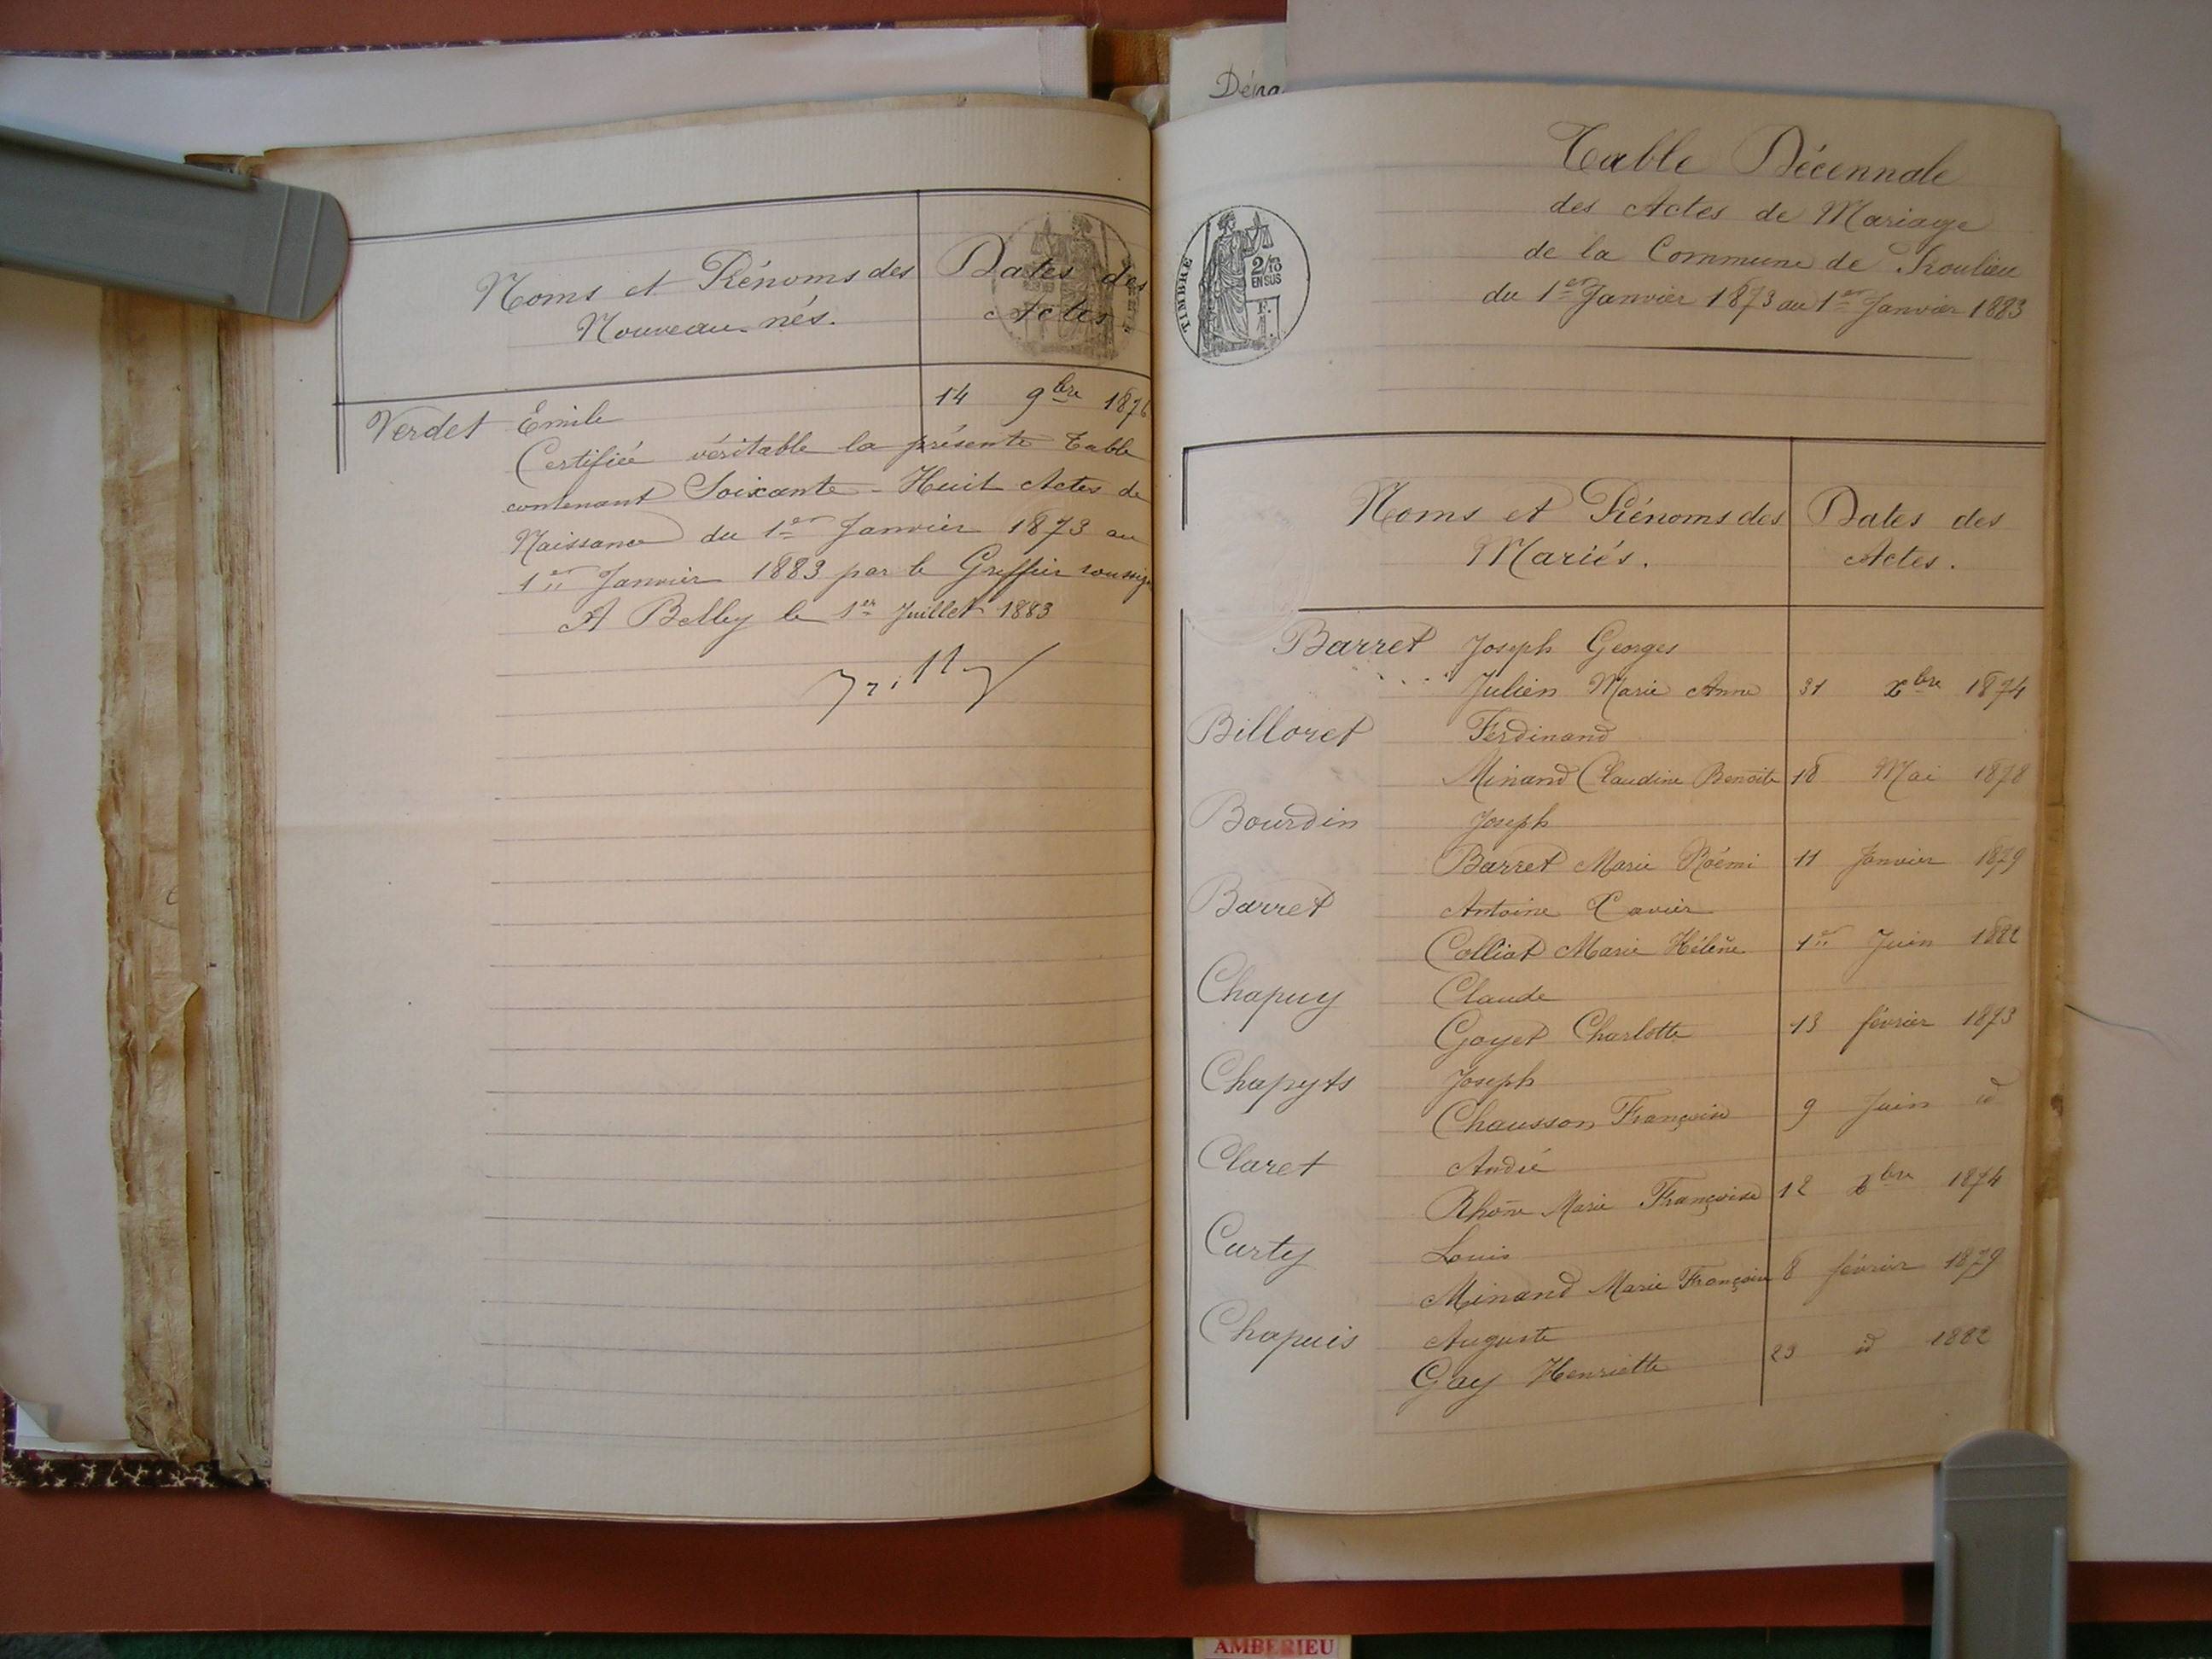 Dépa
Noms et Prénoms des
Nouveau-nés.
Dates des
Actes
Verdet Emile 14 9bre 1876
Certifiée véritable la présente Table
contenant Soixante-Huit Actes de
Naissance du 1er Janvier 1873 au
1er Janvier 1883 par le Greffier soussig
A Belley le 1er Juillet 1883
Table Décennale
des Actes de Mariage
de la Commune de
du 1er Janvier 1873 au 1er Janvier 1883
TIMBRE
2/10
EN SUS
1 F.
Noms et Prénoms des
Mariés.
Dates des
Actes.
Barret Joseph Georges
Julien Marie Anne 31 Xbre 1874
Billoret Ferdinand
Minand Claudine Benoite 18 Mai 1878
Bourdin Joseph
Barret Marie Noémi 11 Janvier 1879
Barret Antoine Xavier
Colliat Marie Hélène 1er Juin 1882
Chapuy Claude
Goyet Charlotte 13 février 1873
Chapyts Joseph
Chausson Françoise 9 Juin id
Claret André
Rhône Marie Françoise 12 Xbre 1874
Curty Louis
Minand Marie Françoise 8 février 1879
Chapuis Auguste
Gay Henriette 23 id 1882
AMBERIEU